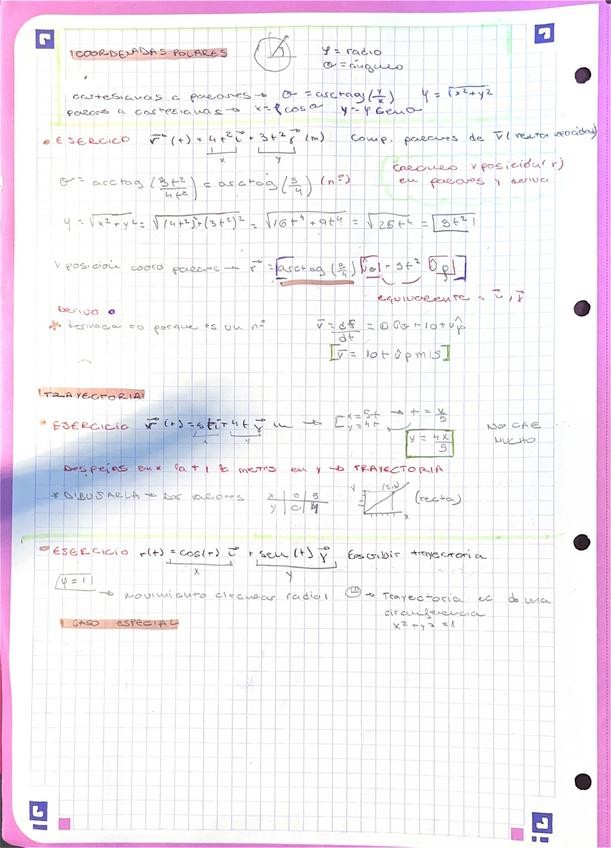 COORDENADAS POLARES
φ = radio
θ = ángulo
cartesianas a polares → θ = arctag (y/x) φ = √x²+y²
polares a cartesianas → x = φ cosθ y = φ senθ
• EJERCICIO r⃗(t) = 4t² i⃗ + 3t² j⃗ (m) Comp. polares de v⃗ (vector velocidad)
x y
calculo v posición (r)
en polares y derivo
θ = arctag (3t²/4t²) = arctag (3/4) (nº)
φ = √x²+y² = √(4t²)²+(3t²)² = √16t⁴+9t⁴ = √25t⁴ = 5t²
v posición coord polares → r⃗ = [arctag (3/4) ûθ + 5t² ûρ]
equivalente = i⃗, j⃗
Derivo
* derivada 0 porque es un nº v⃗ = dr⃗/dt = 0 ûθ + 10t ûρ
[v⃗ = 10t ûρ m/s]
TRAYECTORIA
• EJERCICIO r⃗(t) = 5t i⃗ + 4t j⃗ m → [x = 5t → t = x/5
x y
y = 4t
y = 4x/5
NO CAE
MUCHO
Despejas en x la t y la metes en y → TRAYECTORIA
* DIBUJARLA → Dos valores x | 0 | 5
y | 0 | 4
y (5,4) x (recta)
• EJERCICIO r(t) = cos(t) i⃗ + sen(t) j⃗ Escribir trayectoria
x y
φ = 1
→ movimiento circular radial → Trayectoria ec de una
circunferencia
x² + y² = 1
CASO ESPECIAL